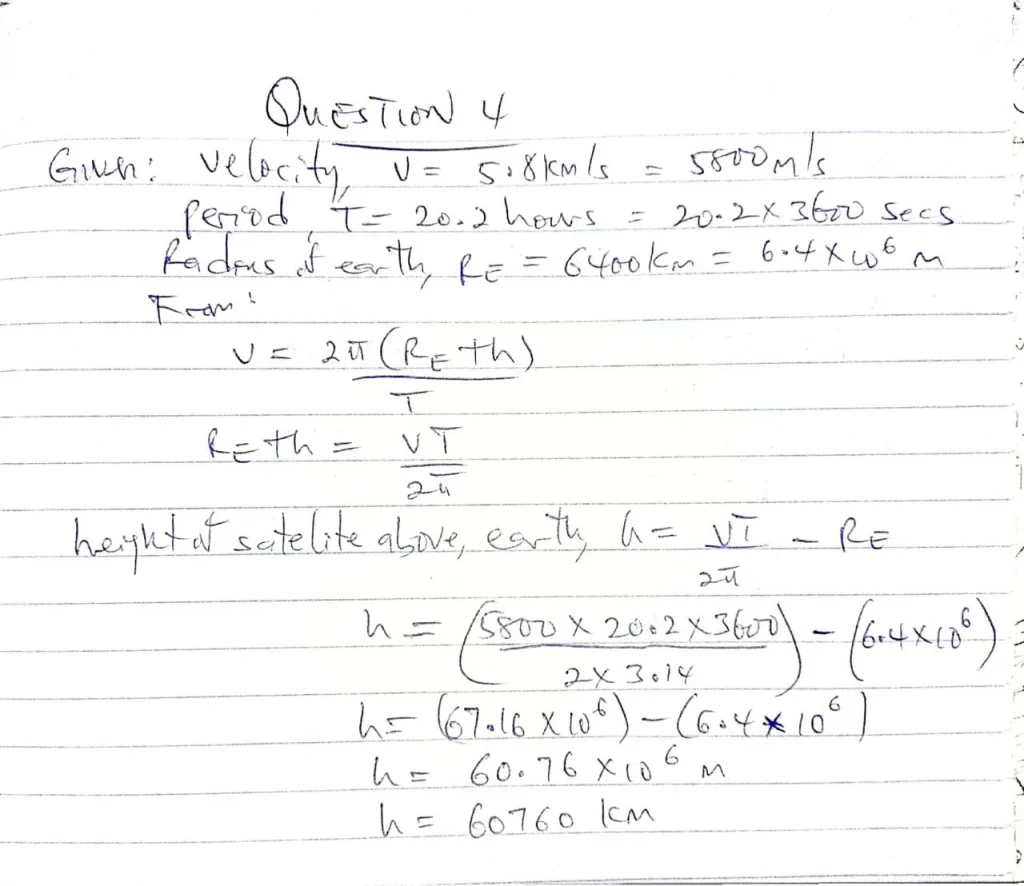 QUESTION 4
Given: velocity, v = 5.8km/s = 5800m/s
period, T = 20.2 hours = 20.2 x 3600 secs
Radius of earth, RE = 6400km = 6.4 x 10^6 m
From:
v = 2π(RE + h)
T
RE + h = vT
2π
height of satelite above, earth, h = vT - RE
2π
h = (5800 x 20.2 x 3600) - (6.4 x 10^6)
2 x 3.14
h = (67.16 x 10^6) - (6.4 x 10^6)
h = 60.76 x 10^6 m
h = 60760 km